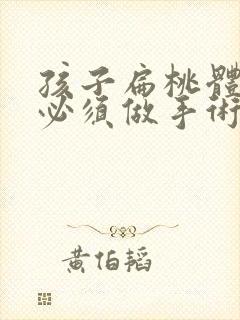 孩子扁桃體
必須做手術
黃伯韜